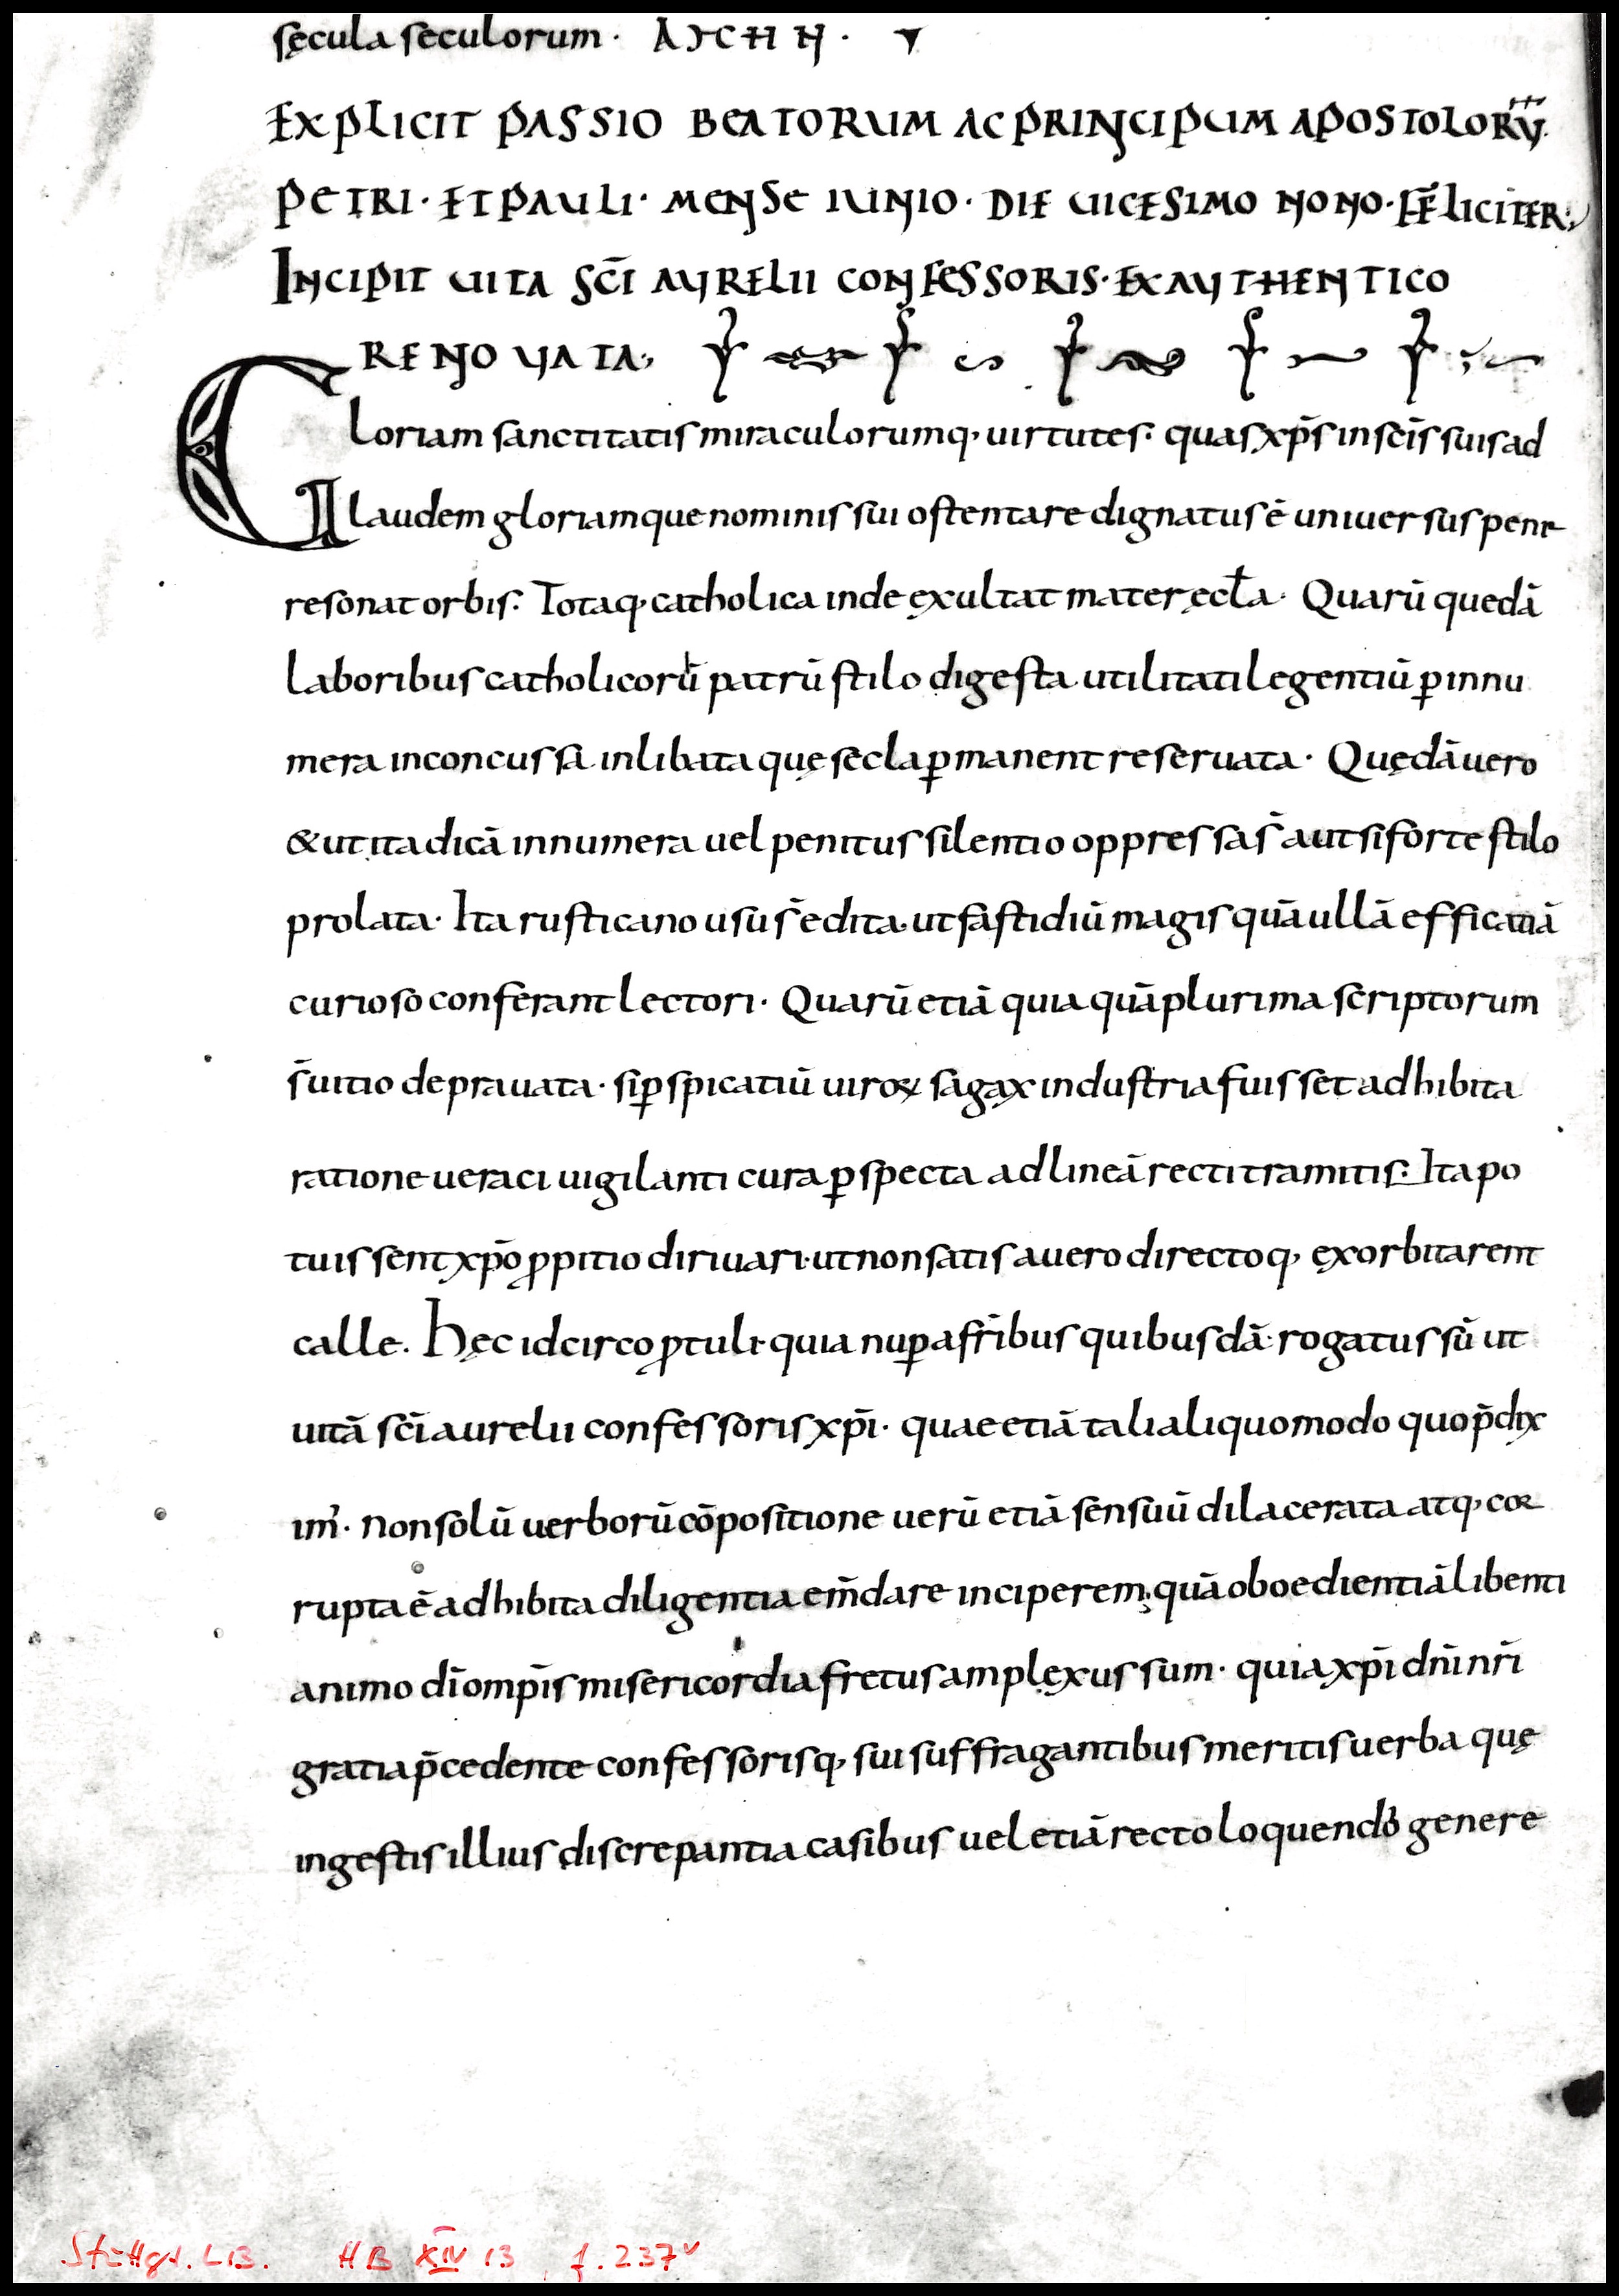 sęcula seculorum · AMEN ·
EXPLICIT PASSIO BEATORUM AC PRINCIPUM APOSTOLORŪ
PETRI · ET PAULI · MENSE IUNIO · DIE UICESIMO NONO · FELICITER;
INCIPIT UITA SC̄I AURELII CONFESSORIS · EX AUTHENTICO
RENOUATA;
Gloriam sanctitatis miraculorumq; uirtutes · quas xp̄s in sc̄is suis ad
laudem gloriamque nominis sui ostentare dignatus ē uniuersus pene
resonat orbis. Totaq; catholica inde ęxultat mater ęcl̄a · Quarū quedā
laboribus catholicorū patrū stilo digesta utilitati legentiū ꝑ innu
mera inconcussa inlibata quę secla ꝑmanent reseruata · Quędā uero
& ut ita dicā innumera uel penitus silentio oppressa s̄ aut si forte stilo
prolata · Ita rusticano usu s̄ edita · ut fastidiū magis quā ullā efficatiā
curioso conferant lectori · Quarū etiā quia quā plurima scriptorum
s̄ uitio deprauata · si ꝑspicatiū uiroꝝ sagax industria fuisset adhibita
ratione ueraci uigilanti cura ꝑspecta ad lineā recti tramitis: Ita po
tuissent xp̄o ꝓpitio diriuari · ut non satis a uero directoq; ęxorbitarent
calle. Hęc idcirco ꝓtuli · quia nuꝑ a fr̄ibus quibusdā rogatus sū ut
uitā sc̄i aurelii confessoris xp̄i · quae etiā tali aliquomodo quo p̄dix
im̄ · non solū uerborū cōpositione uerū etiā sensuū dilacerata atq; cor
rupta ē adhibita diligentia em̄dare inciperem; quā oboedientiā libenti
animo dī omp̄is misericordia fretus amplęxus sum · quia xp̄i dn̄i nr̄i
gratia p̄cedente confessorisq; sui suffragantibus meritis uerba quę
in gestis illius discrepantia casibus uel etiā recto loquendo genere
Stuttgt. LB. HB XIV 13, f. 237v